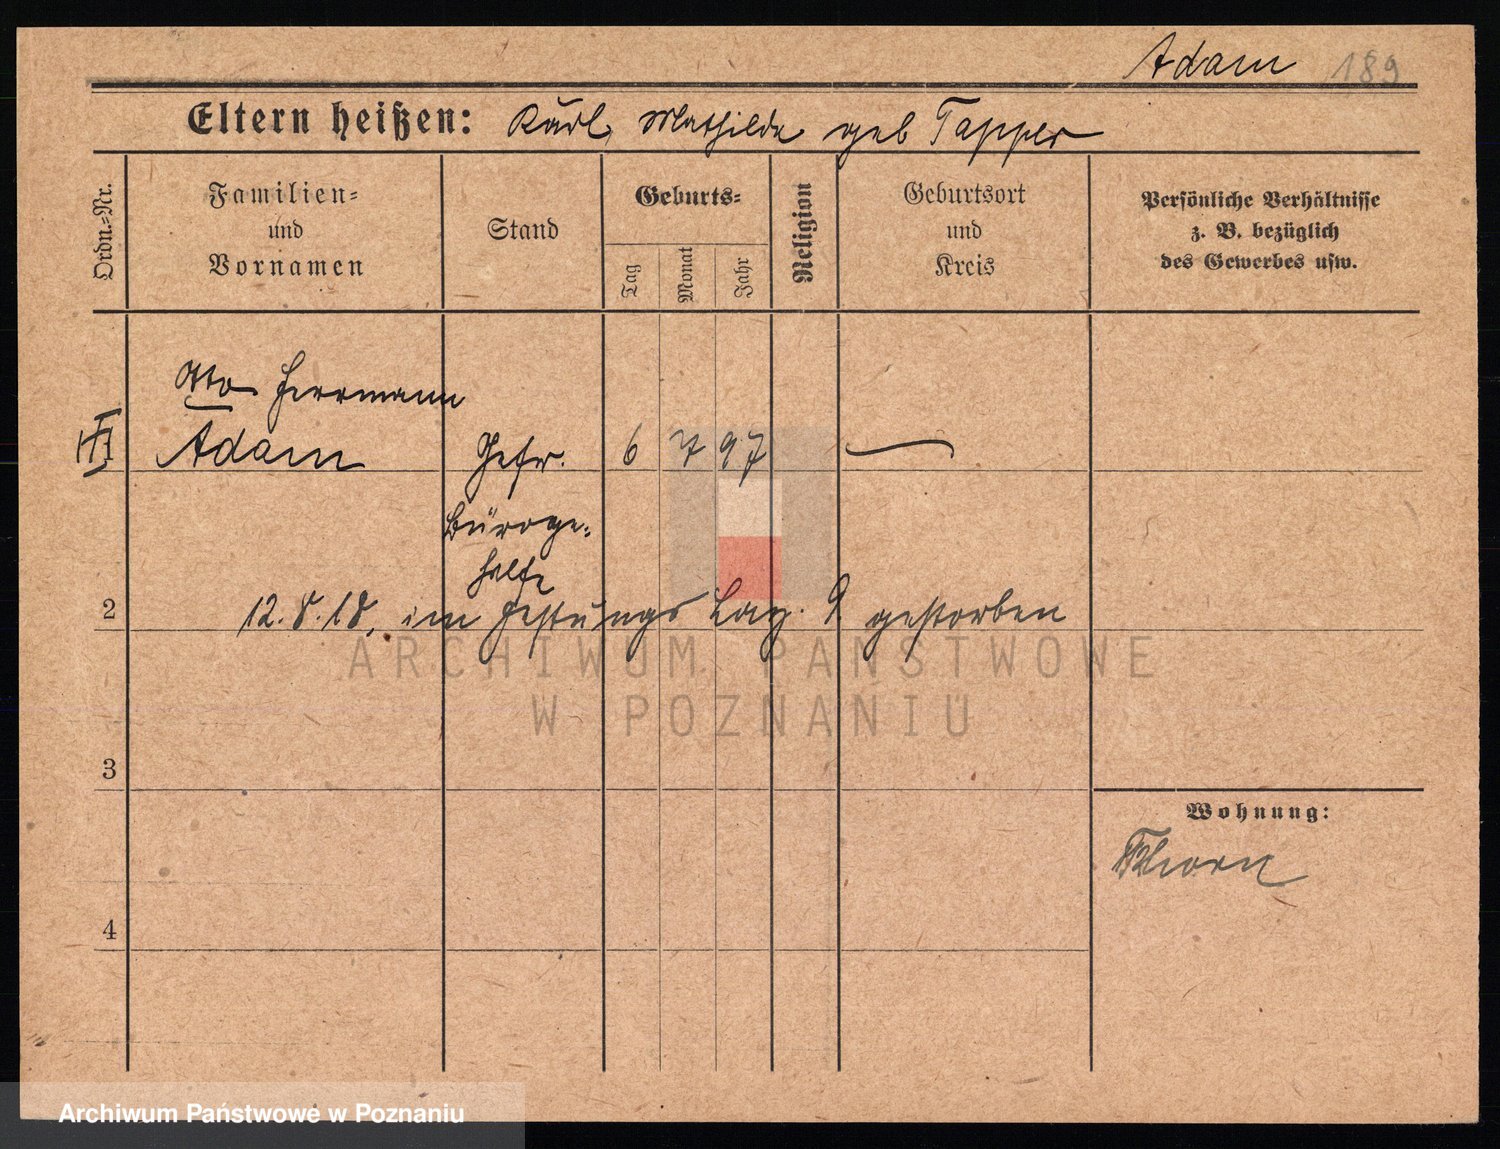 Adam 189
Eltern heißen: Karl, Mathilde geb Tapper
Ordn.=Nr.
Familien=
und
Vornamen
Stand
Geburts=
Tag
Monat
Jahr
Religion
Geburtsort
und
Kreis
Persönliche Verhältnisse
z. B. bezüglich
des Gewerbes usw.
Otto Herrmann
1 Adam Gefr. 6 7 97 —
Büroge=
hilfe
2 12.8.18. im Festungs Laz. 9 gestorben
ARCHIWUM PAŃSTWOWE
W POZNANIU
3
Wohnung:
Thorn
4
Archiwum Państwowe w Poznaniu